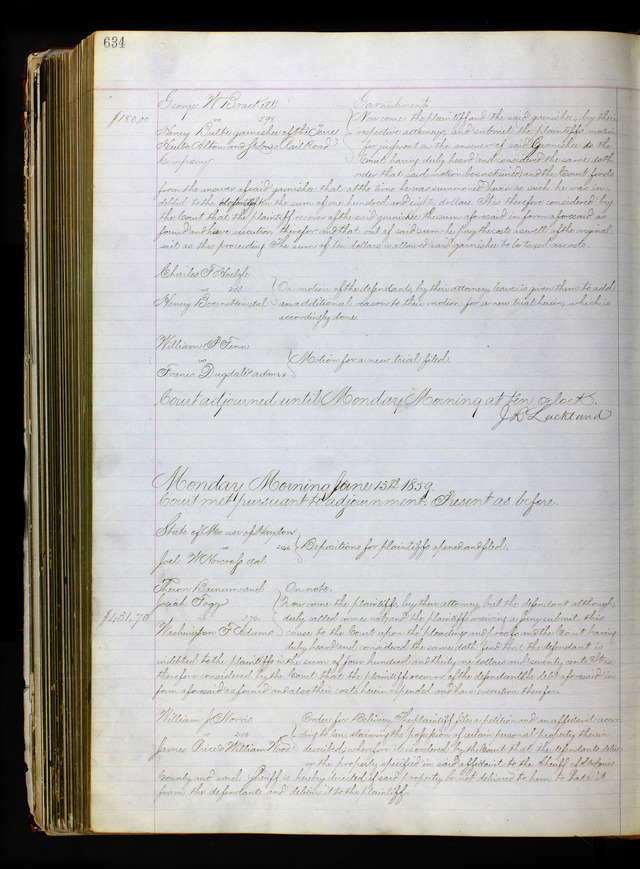 634
George W Brackett Garnishment
$180,00 vs Now come the plaintiff and the said garnishee, by their
Henry garnishee of the Terre respective attorneys, and submit the plaintiffs motion
Haute Alton and St Louis Rail Road for judgment on the answer of said Garnishee to the
Company Court having duly heard and considered the same doth
order that said motion be sustained and the Court finds
from the answer of said garnishee that at the time he was summoned herein as such he was in-
debted to the defendant in the sum of one hundred and eighty dollars. It is therefore considered by
the Court that the plaintiff recover of the said garnishee the sum aforesaid in form aforesaid as
found and have execution therefor and that out of said sum he pay the costs as well of the original
suit as this proceeding. The sum of ten dollars is allowed said garnishee to be taxed as costs.
Charles F
vs On motion of the defendants, by their attorney, leave is given them to add
Henry Boernstein et al an additional reason to their motion for a new trial herein, which is
accordingly done.
William J Fenn
vs Motion for a new trial filed.
Francis Dugdale's admr.
Court adjourned until Monday Morning at ten o'clock.
J R Lackland
Monday Morning June 13th 1859
Court met pursuant to adjournment. Present as before.
State of Mo use of
vs 246 Depositions for plaintiffs opened and filed.
Joel W et al
Theron Barnum and On note.
Josiah Fogg Now come the plaintiffs, by their attorney, but the defendant although
$431,70 vs duly called comes not and the plaintiffs waiving a jury submit this
Washington F Adams cause to the Court upon the pleadings and proofs and the Court having
duly heard and considered the same doth find that the defendant is
indebted to the plaintiffs in the sum of four hundred and thirty one dollars and seventy cents. It is
therefore considered by the Court that the plaintiffs recover of the defendant the debt aforesaid in
form aforesaid as found and also their costs herein expended and have execution therefor.
William J Norris Order for Delivery. The plaintiff files a petition and an affidavit accor-
vs 216 ding to law, claiming the possession of certain personal property therein
James Price & William Wood described; wherefor it is ordered by the Court that the defendants deliver
over the property specified in said affidavit to the Sheriff of St Louis
County and said Sheriff is hereby directed if said property be not delivered to him to take it
from the defendants and deliver it to the plaintiff.